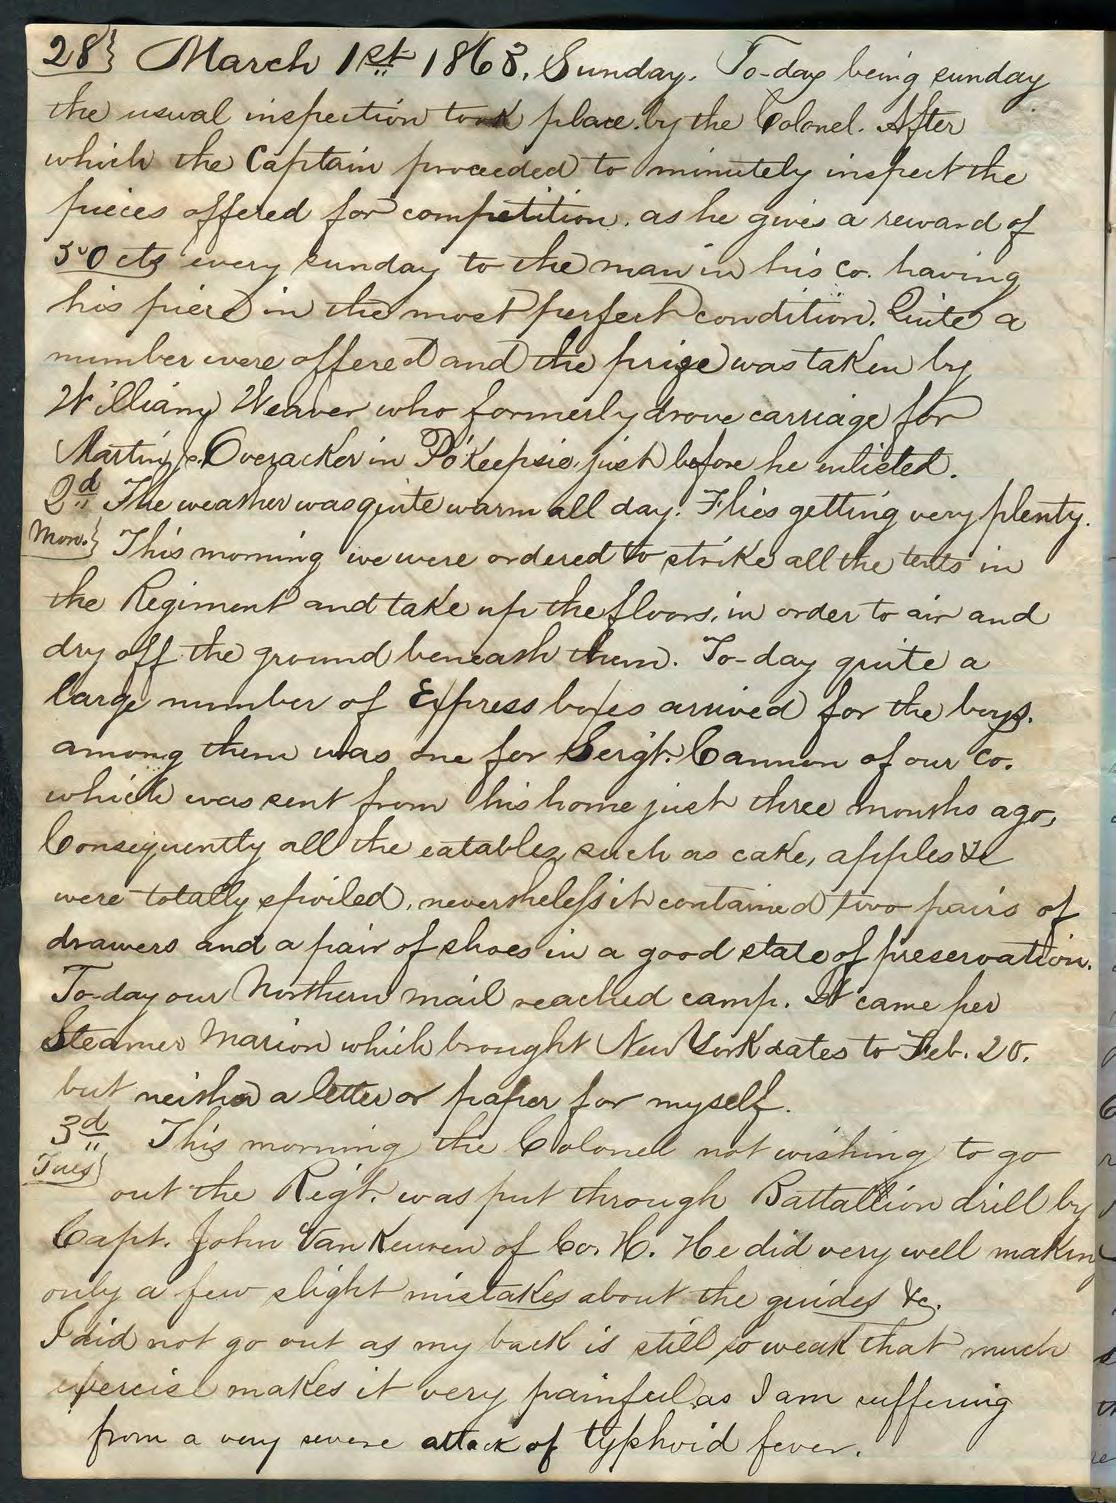 28} March 1st 1863, Sunday. To-day being sunday
the usual inspection took place by the Colonel. After
which the Captain proceeded to minutely inspect the
pieces offered for competition. as he gives a reward of
50 cts every sunday to the man in his co. having
his piece in the most perfect condition. Quite a
number were offered and the prize was taken by
William Weaver who formerly drove carriage for
Martin, Jr. Overacker in Po'Keepsie, just before he enlisted.
2d The weather was quite warm all day. Flies getting very plenty.
Mon.} This morning we were ordered to strike all the tents in
the Regiment and take up the floors, in order to air and
dry off the ground beneath them. To-day quite a
large number of Express boxes arrived for the boys.
among them was one for Sergt. Cannon of our Co.
which was sent from his home just three months ago,
Consequently all the eatables, such as cake, apples &c
were totally spoiled, nevertheless it contained two pairs of
drawers and a pair of shoes in a good state of preservation.
To-day our Northern mail reached camp. It came per
Steamer Marion which brought New York dates to Feb. 20.
but neither a letter or paper for myself.
3d This morning the Colonel not wishing to go
Tues} out the Regt. was put through Battallion drill by
Capt. John Van Keuren of Co. H. He did very well making
only a few slight mistakes about the guides &c.
I did not go out as my back is still so weak that much
exercise makes it very painful, as I am suffering
from a very severe attack of typhoid fever.